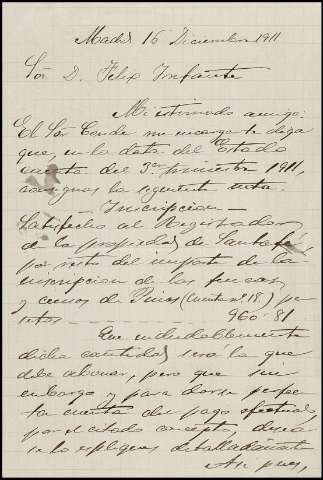 Madrid 16 Diciembre 1911
Sor D. Felix Infante
Mi estimado amigo:
El Sor Conde me encarga le diga
que, en la data del Estado
cuenta del 3er trimestre 1911,
consignas la siguiente nota.
— Inscripcion —
Satisfecho al Registrador
de la propiedad de Santafé,
por resto del importe de la
inscripcion de las fincas
y censos de Pinos (Cuenta nº 18) pe
setas — 960·81
Que indudablemente
dicha cantidad será la que
debe abonar, pero que sin
embargo y para darse perfec
ta cuenta del pago efectuado
por el citado concepto, desea
se lo expliques detalladamente
Asi pues,